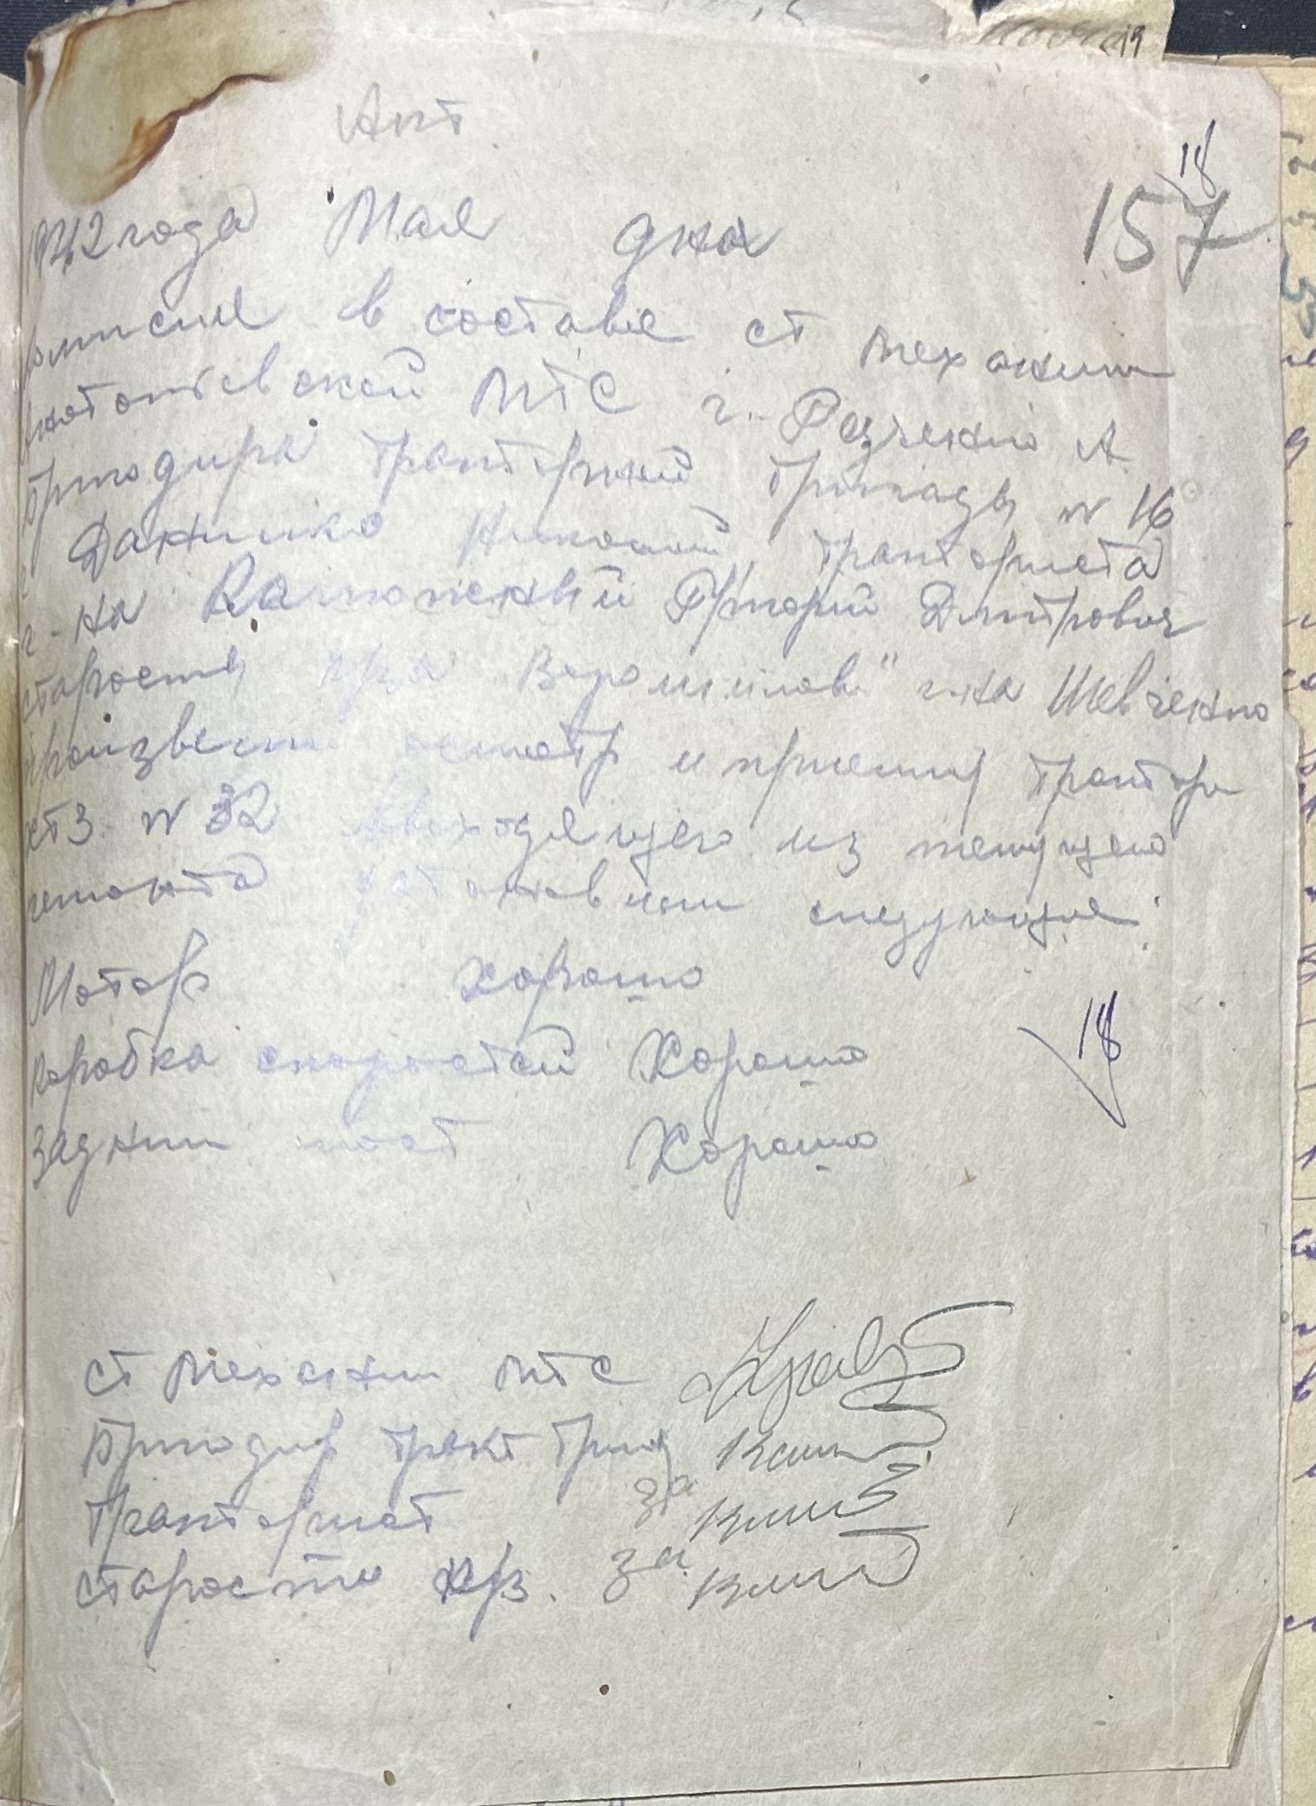 19
Акт
18
157
1942 года Мая дня
омисия в составе ст механик
МТС г. А.
Бригадира тракторной бригады № 16
Данилко Николай, тракториста
г-на Григорий Дмитрович
старосты кр-за Ворошилова" г-на Шевченко
произвели осмотр и приемку трактора
хтз № 32 выходящего из текущего
ремонта установили следующее:
Мотор хорошо
коробка скоростей Хорошо
18
Задний мост Хорошо
ст механик МТС
Бригадир тракт бриг
Тракторист за
староста кр/з. за